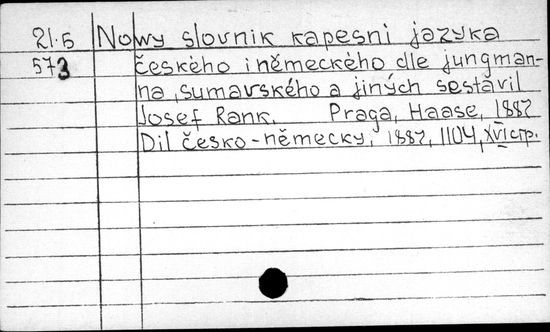 21.5 Nowy slovnik kapesni jazyka
573 českého i německého dle jungman-
na, sumavského a jiných sestavil
Josef Rank. Praga, Haase, 1882
Dil česko-německy, 1882, 1104, XVI стр.